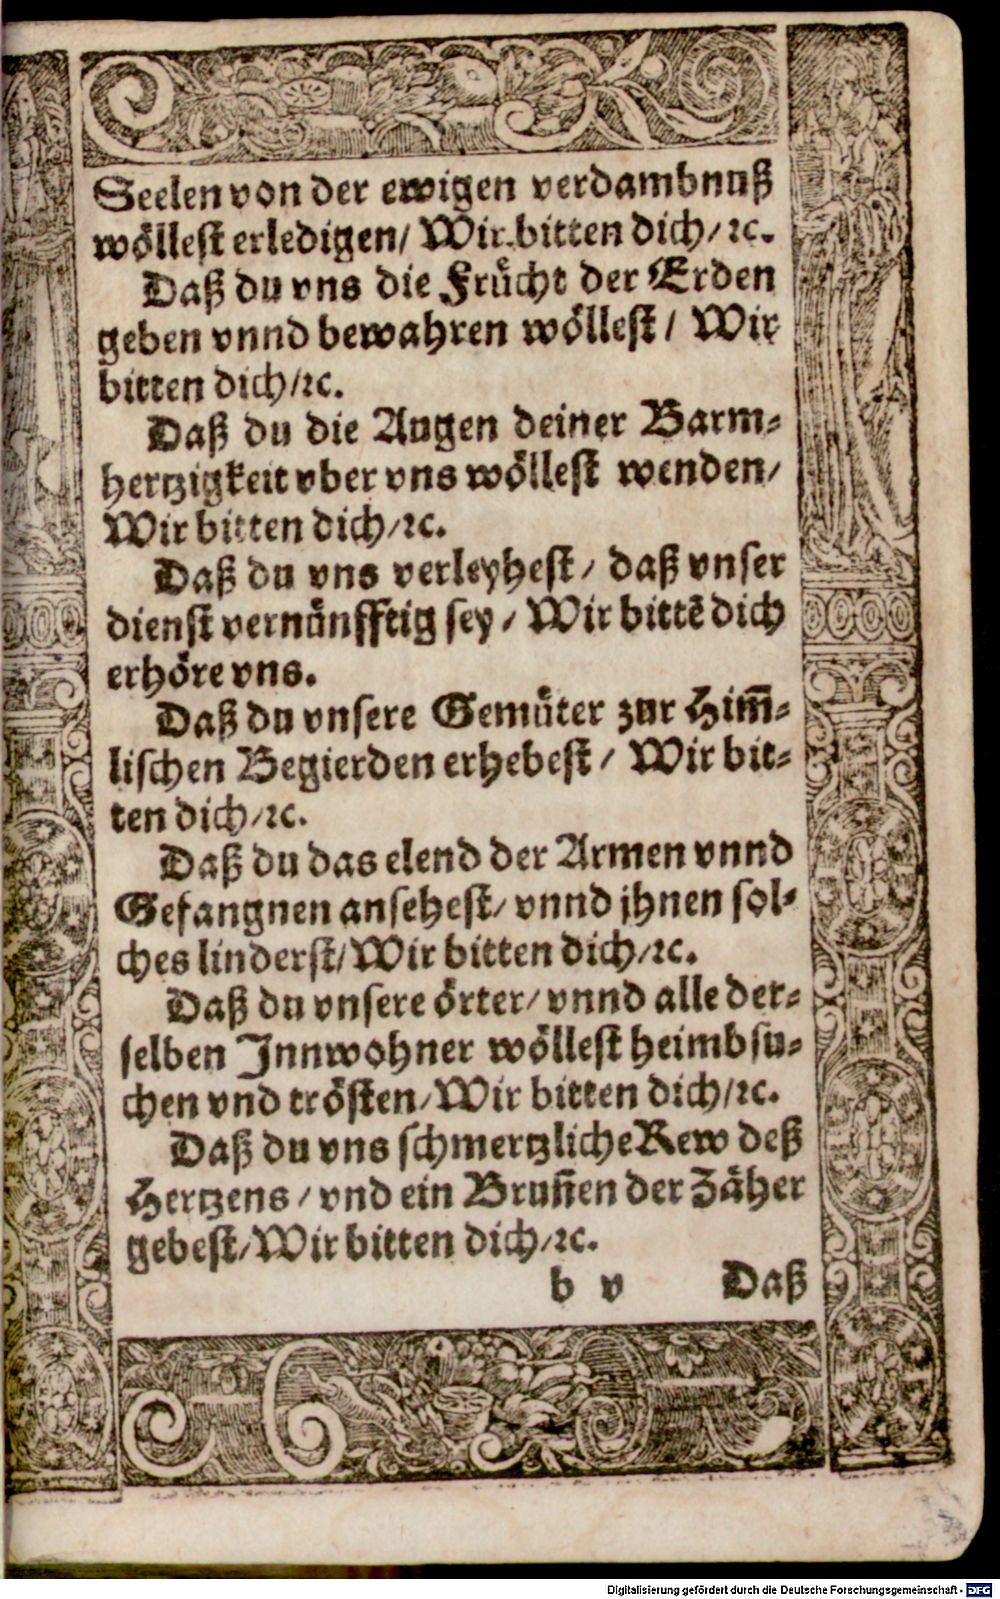 Seelen von der ewigen verdambnuß
wöllest erledigen/ Wir bitten dich/ ꝛc.
Daß du vns die Frücht der Erden
geben vnnd bewahren wöllest/ Wir
bitten dich/ꝛc.
Daß du die Augen deiner Barm-
hertzigkeit vber vns wöllest wenden/
Wir bitten dich/ꝛc.
Daß du vns verleyhest/ daß vnser
dienst vernünfftig sey/ Wir bittẽ dich
erhöre vns.
Daß du vnsere Gemüter zur Him̃-
lischen Begierden erhebest/ Wir bit-
ten dich/ꝛc.
Daß du das elend der Armen vnnd
Gefangnen ansehest/ vnnd jhnen sol-
ches linderst/ Wir bitten dich/ꝛc.
Daß du vnsere örter/ vnnd alle der-
selben Innwohner wöllest heimbsu-
chen vnd trösten/ Wir bitten dich/ꝛc.
Daß du vns schmertzliche Rew deß
Hertzens/ vnd ein Brun̄en der Zäher
gebest/ Wir bitten dich/ꝛc.
b v Daß
Digitalisierung gefördert durch die Deutsche Forschungsgemeinschaft - DFG